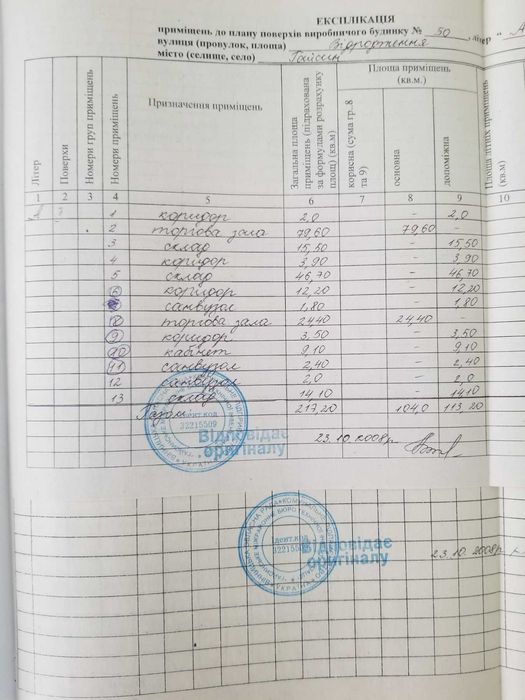 ЕКСПЛІКАЦІЯ
приміщень до плану поверхів виробничого будинку № 50, літер "А
вулиця (провулок, площа) Відродження
місто (селище, село) Гайсин
Літер
Поверхи
Номери груп приміщень
Номери приміщень
Призначення приміщень
Загальна площа приміщень (підрахована за формулами розрахунку площ) (кв.м)
Площа приміщень (кв.м.)
корисна (сума гр..8 та 9)
основна
допоміжна
Площа літніх приміщень (кв.м)
1 2 3 4 5 6 7 8 9 10
1 коридор 2,0 – 2,0
2 торгова зала 79,60 79,60 –
3 склад 15,50 – 15,50
4 коридор 3,90 – 3,90
5 склад 46,70 – 46,70
6 коридор 12,20 – 12,20
санвузол 1,80 – 1,80
8 торгова зала 24,40 24,40 –
9 коридор 3,50 – 3,50
10 кабінет 9,10 – 9,10
11 санвузол 2,40 – 2,40
12 санвузол 2,0 – 2,0
13 склад 14,10 – 14,10
Разом 217,20 104,0 113,20
ідент.код
32215509
Відповідає
оригіналу
23.10.2008р.
ідент.код
32215509
Відповідає
оригіналу
23.10.2008р.